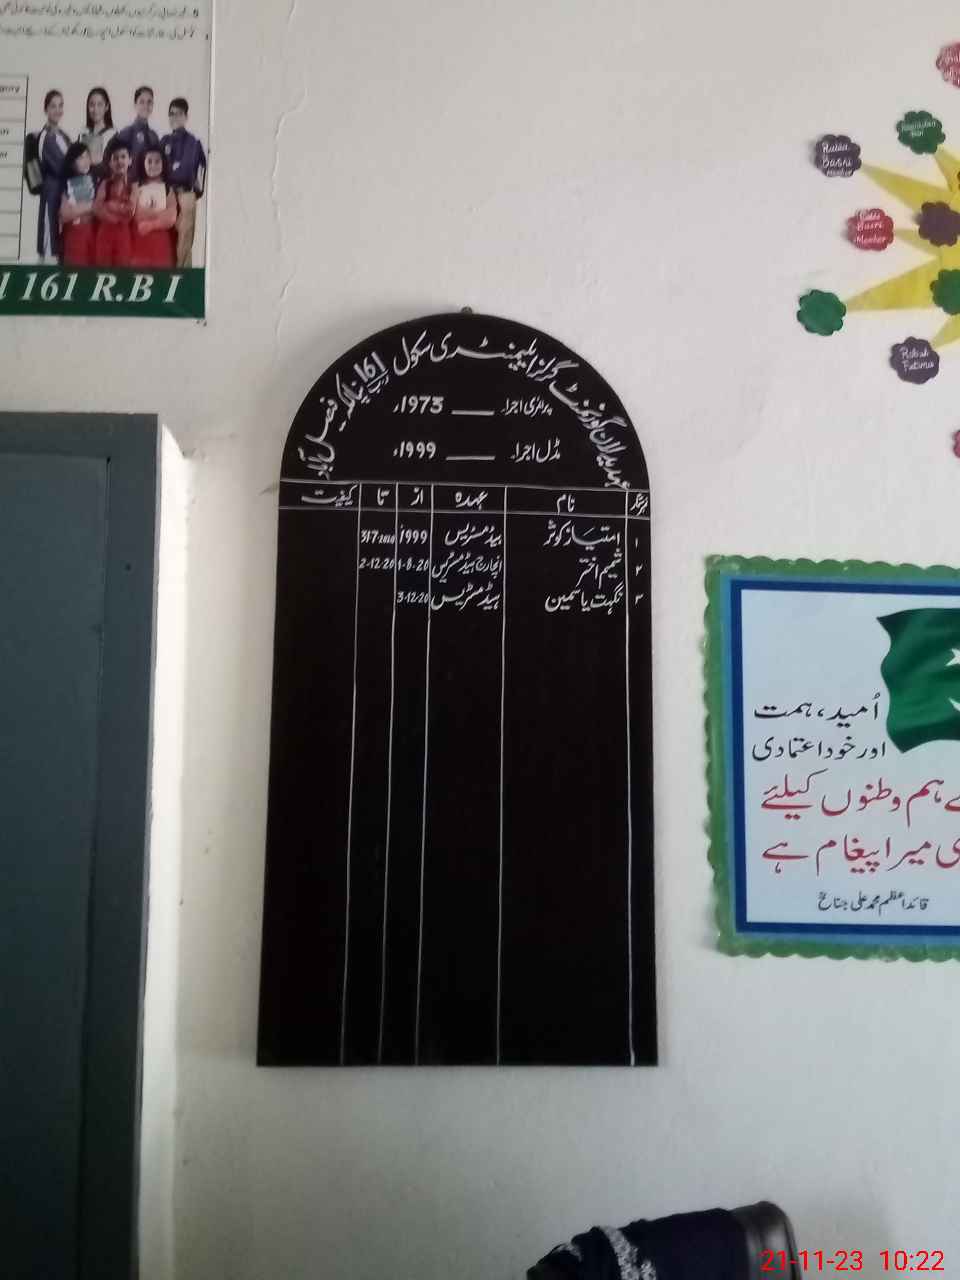 l 161 R.B I
Rabia
Basri
Member
Rabia
Basri
Member
Rabab
Fatima
عہدیداران گورنمنٹ گرلز ایلیمنٹری سکول 161 رب پناکہ۔ فیصل آباد
پرائمری اجراء ___ 1973ء
مڈل اجراء ___ 1999ء
نمبر شمار نام عہدہ از تا کیفیت
۱ امتیاز کوثر ہیڈمسٹریس 1999ء
۲ شمیم اختر انچارج ہیڈمسٹریس 1-8-20 2-12-20
۳ نگہت یاسمین ہیڈمسٹریس 3-12-20
اُمید، ہمت
اور خود اعتمادی
ہم وطنوں کیلئے
میرا پیغام ہے
قائد اعظم محمد علی جناح
21-11-23 10:22